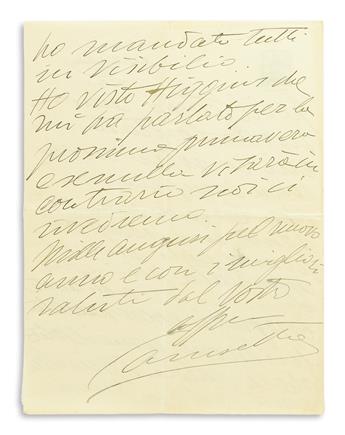 ho mandato tutti
in visibilio.
Ho visto Higgins che
mi ha parlato per la
prossima primavera
e se nulla vi sarà in
contrario noi ci
rivedremo.
Mille auguri pel nuovo
anno e con i migliori
saluti dal vostro
Caruso